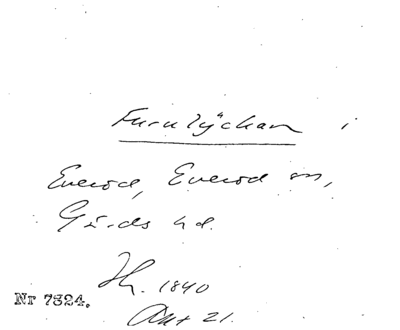 Furulyckan i
Everöd, Everöd sn,
Gärds hd.
Sk. 1840
Akt 21.
Nr 7324.